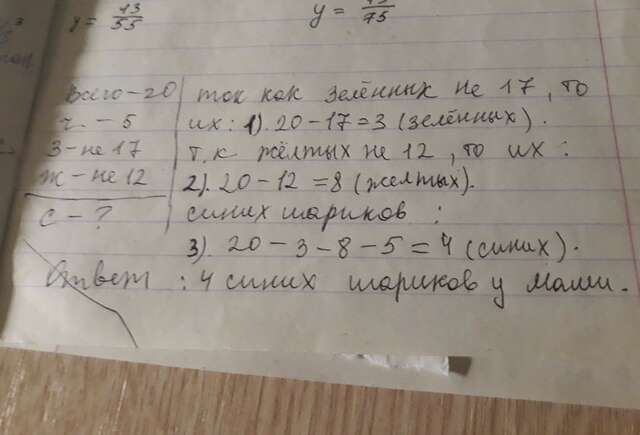 y = 13/55 y = 13/75
Всего-20
ч. - 5
З-не 17
Ж-не 12
С - ?
так как зелённых не 17, то
их: 1). 20-17=3 (зелённых).
т.к жёлтых не 12, то их:
2). 20-12=8 (желтых).
синих шариков:
3). 20-3-8-5=4 (синих).
Ответ: 4 синих шариков у Мами.